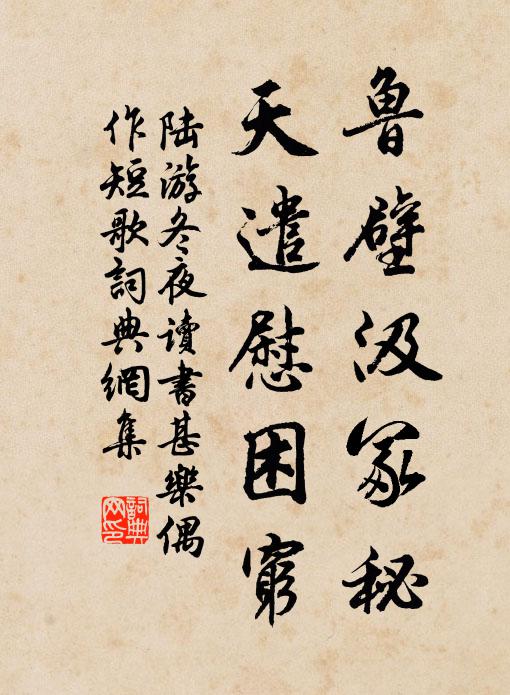 鲁壁汲冢秘
天遣慰困窮
陆游冬夜读書甚樂偶
作短歌詞典網集
詞典网印